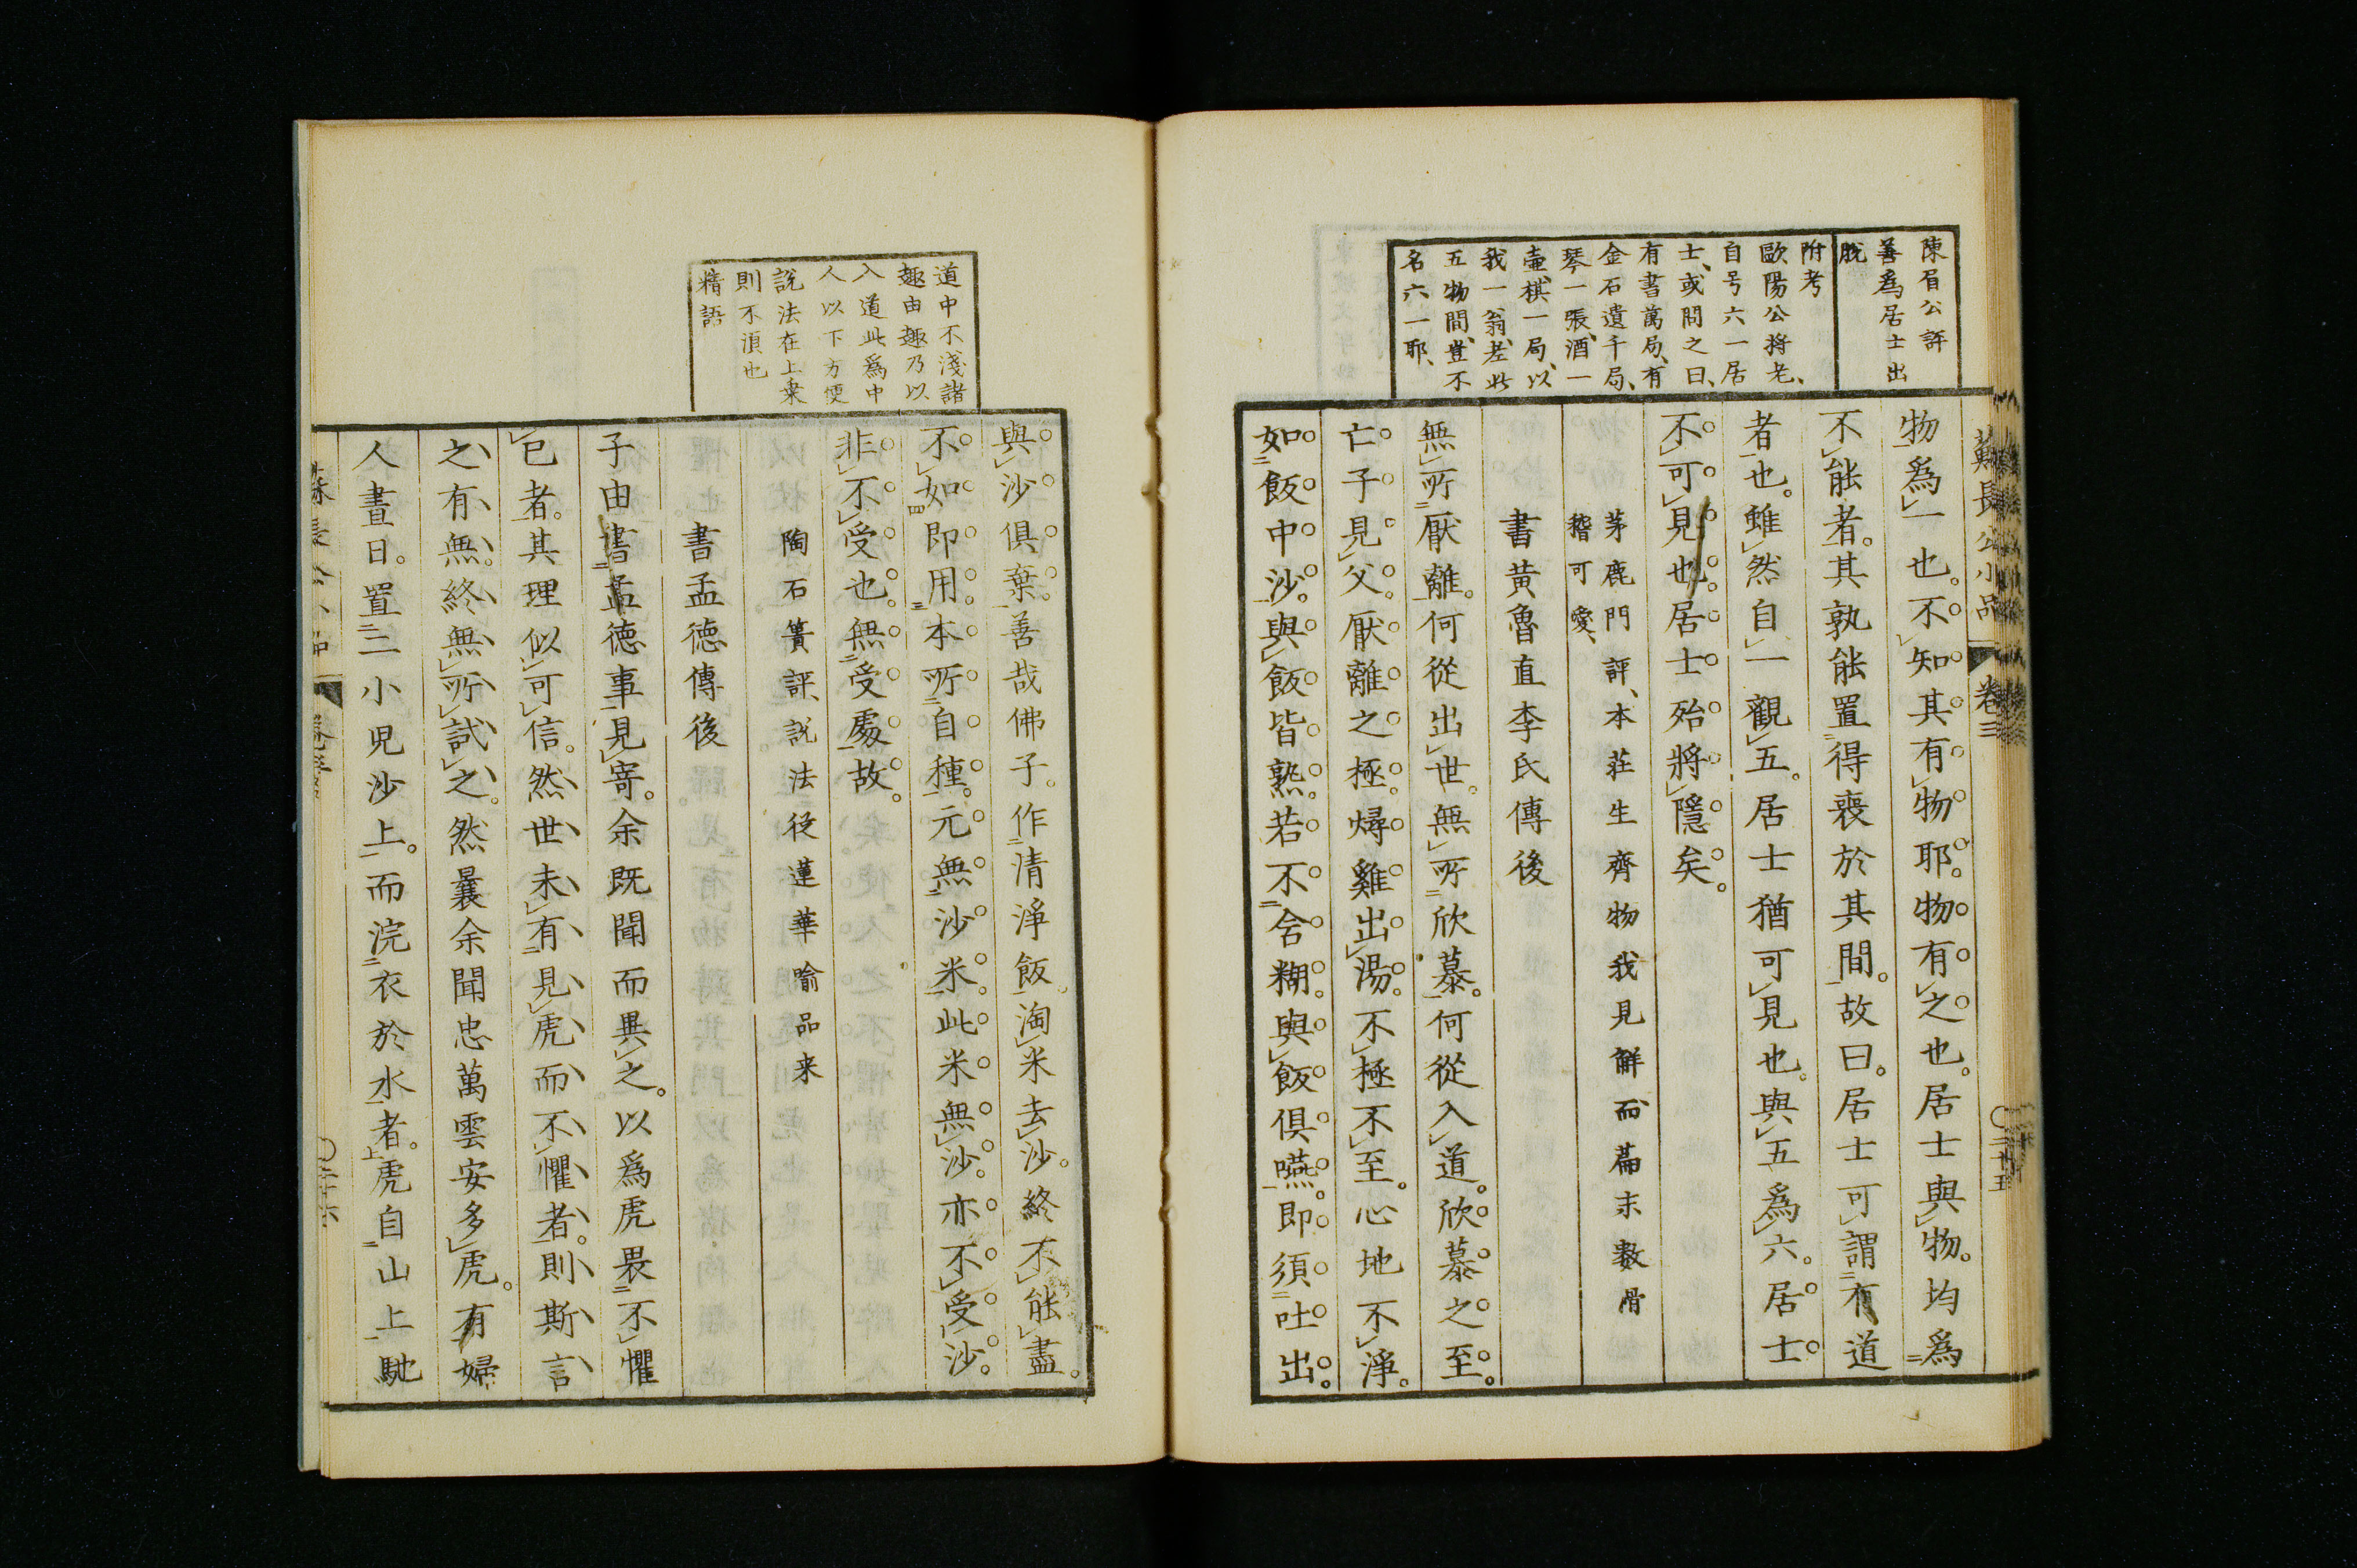 陳眉公評
善爲居士出
脫
附考
歐陽公將老、
自号六一居
士、或問之曰、
有書萬局、有
金石遺千局、
琴一張、酒一
壷、棋一局、以
我一翁、老此
五物間、豈不
名六一耶、
蘇長公小品 卷三 〇二十五
物爲一也。不知其有物耶。物有之也。居士與物。均爲
不能者。其孰能置得喪於其間。故曰。居士可謂有道
者也。雖然自一觀五。居士猶可見也。與五爲六。居士
不可見也。居士殆將隱矣。
茅鹿門評、本莊生齊物我見解而篇末數滑
稽可愛、
書黄魯直李氏傳後
無所厭離。何從出世。無所欣慕。何從入道。欣慕之至。
亡子見父。厭離之極。燖雞出湯。不極不至。心地不淨。
如飯中沙。與飯皆熟。若不含糊。與飯俱嚥。即須吐出。
道中不淺諸
趣由趣乃以
入道此爲中
人以下方便
説法在上乗
則不湏也
精語
與沙俱棄。善哉佛子。作清淨飯。淘米去沙。終不能盡。
不如即用本所自種。元無沙米。此米無沙。亦不受沙。
非不受也。無受處故。
陶石簣評、説法從蓮華喻品来
書孟德傳後
子由書孟德事見寄。余既聞而異之。以爲虎畏不懼
已者。其理似可信。然世未有見虎而不懼者。則斯言
之有無。終無所試之。然曩余聞忠萬雲安多虎。有婦
人晝日。置二小児沙上。而浣衣於水者。虎自山上馳